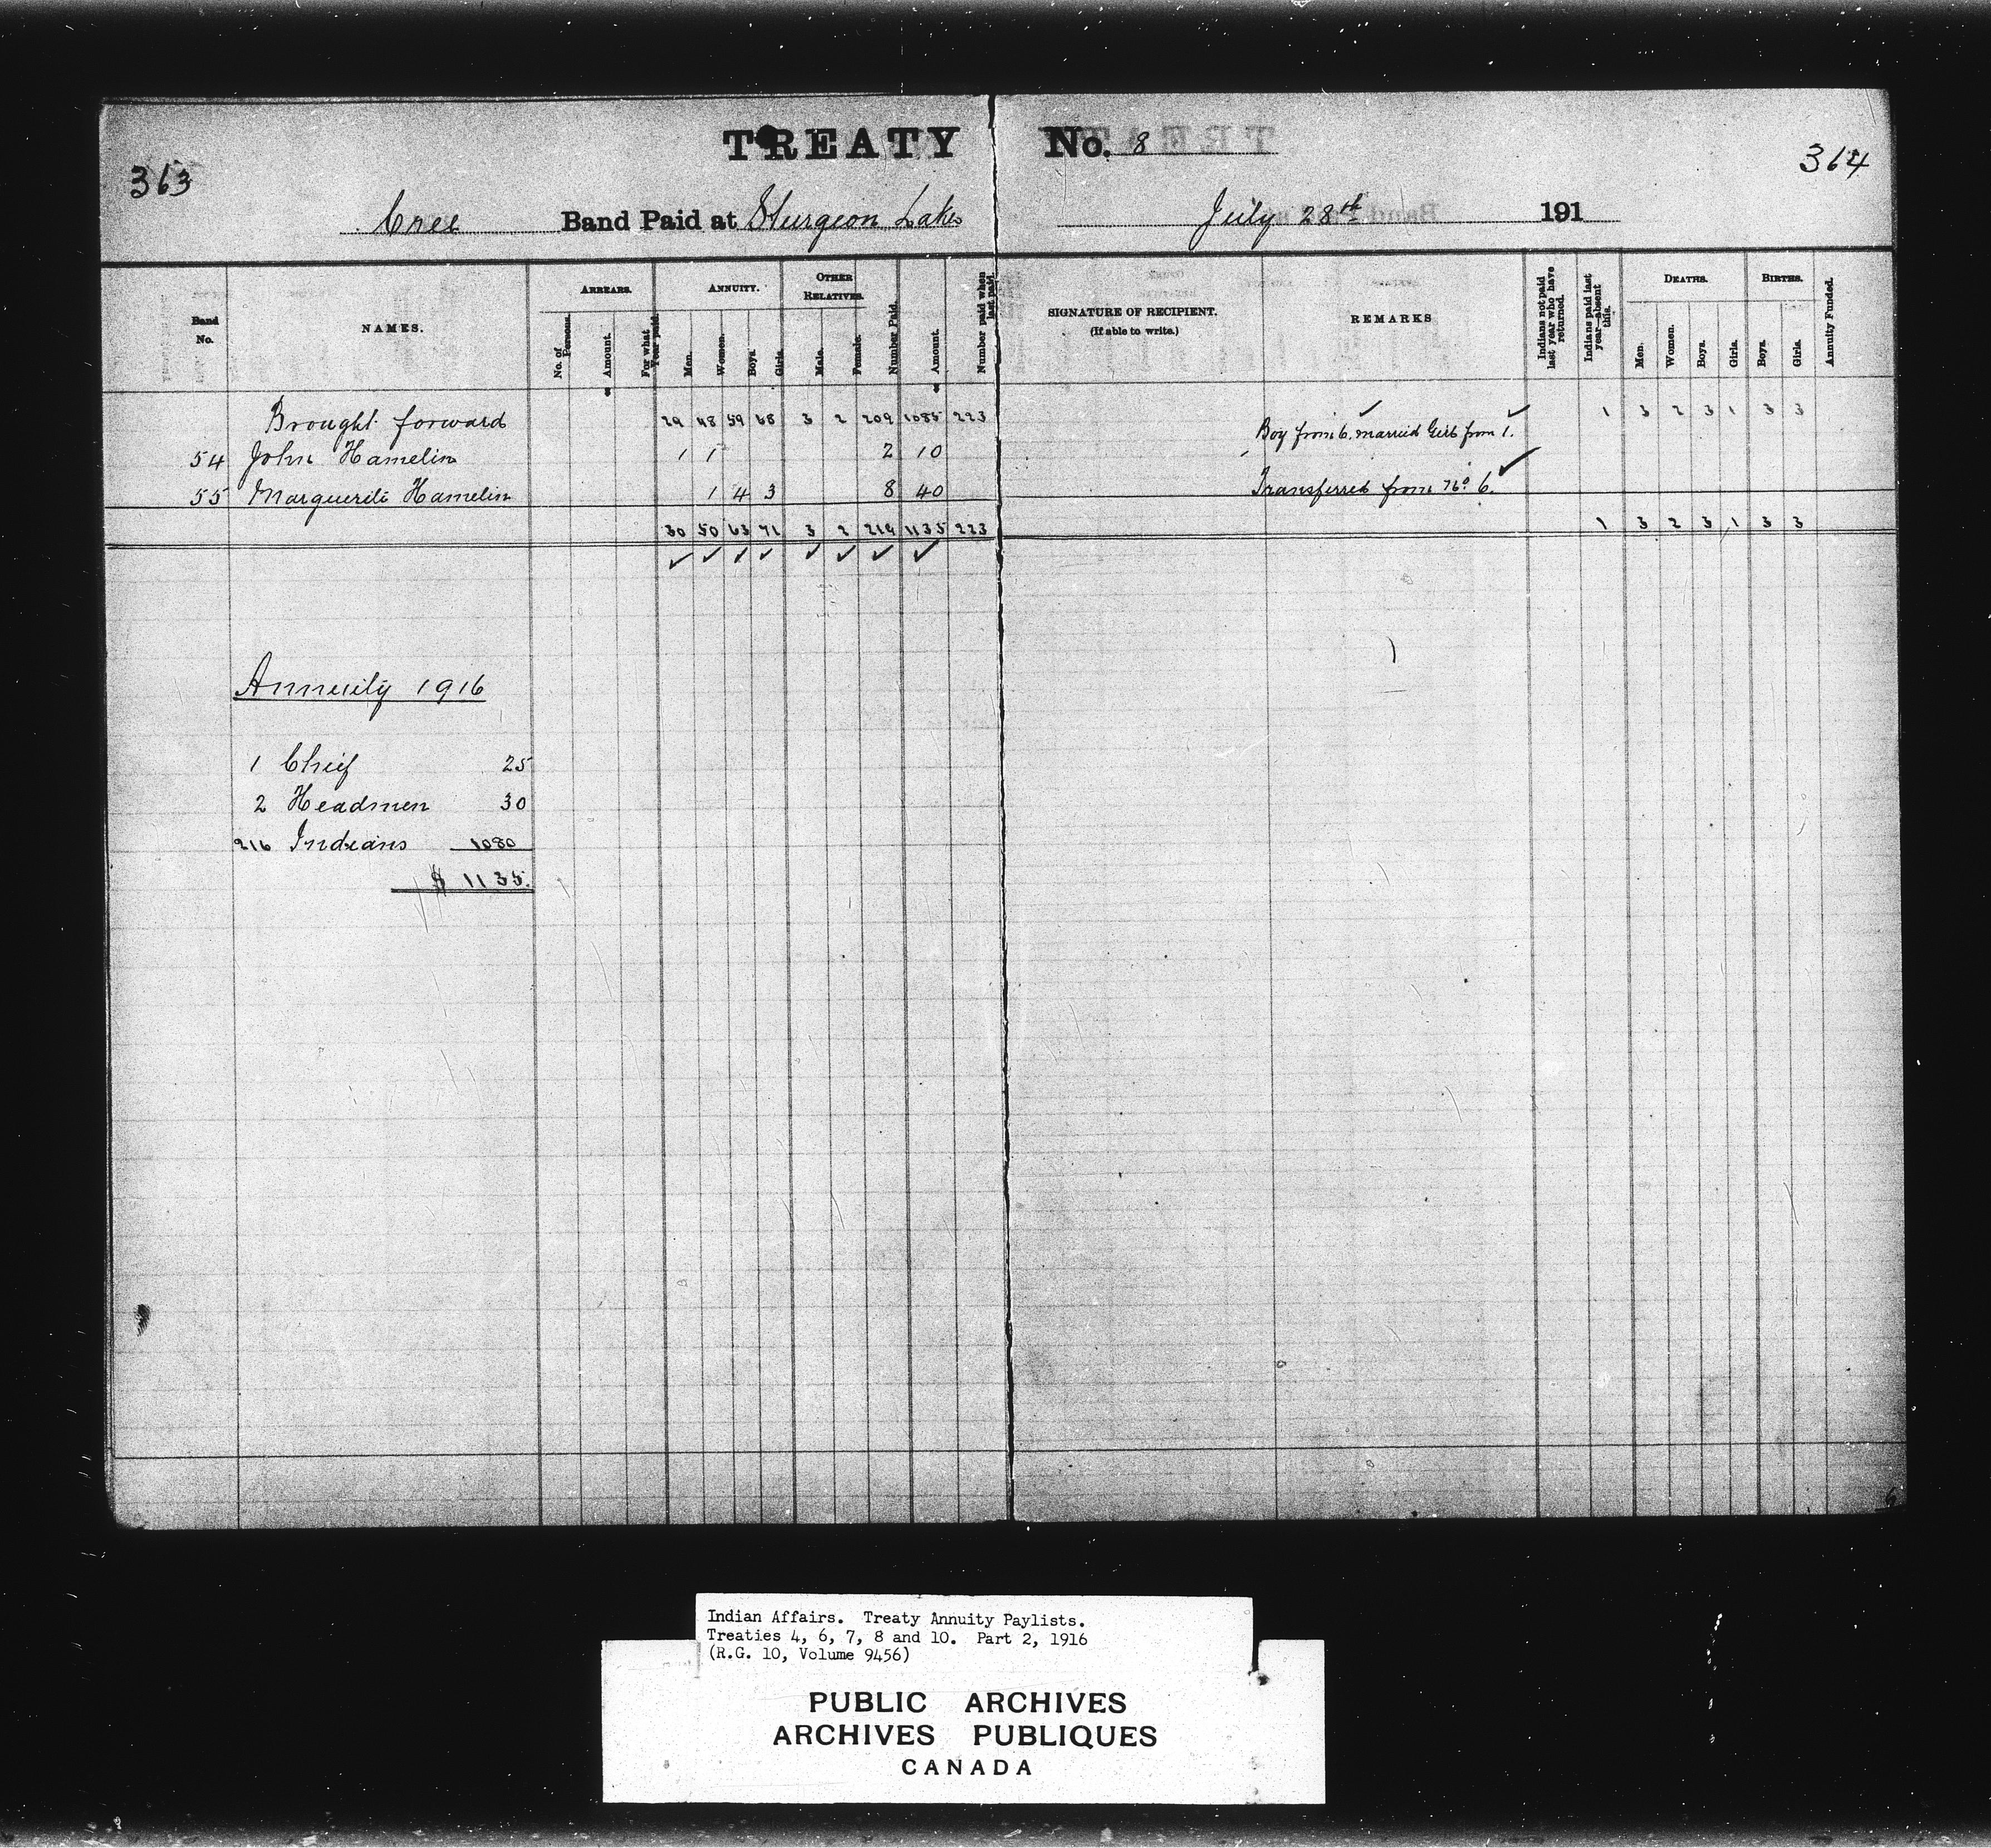 TREATY No. 8
363
364
Cree Band Paid at Sturgeon Lake July 28th 191
Band No.
NAMES.
ARREARS.
No. of Persons.
Amount.
For what Year paid.
ANNUITY.
Men.
Women.
Boys.
Girls.
OTHER RELATIVES.
Male.
Female.
Number Paid.
Amount.
Number paid when last paid.
SIGNATURE OF RECIPIENT.
(If able to write.)
REMARKS
Indians not paid last year who have returned.
Indians paid last year—absent this.
DEATHS.
Men.
Women.
Boys.
Girls.
BIRTHS.
Boys.
Girls.
Annuity Funded.
Brought forward 29 48 59 68 3 2 209 1085 223 1 3 2 3 1 3 3
54 John Hamelin 1 1 2 10 Boy from 6. married Girl from 1.
55 Marguerite Hamelin 1 4 3 8 40 Transferred from No 6.
30 50 63 71 3 2 219 1135 223 1 3 2 3 1 3 3
Annuity 1916
1 Chief 25
2 Headmen 30
216 Indians 1080
$ 1135.
Indian Affairs. Treaty Annuity Paylists.
Treaties 4, 6, 7, 8 and 10. Part 2, 1916
(R.G. 10, Volume 9456)
PUBLIC ARCHIVES
ARCHIVES PUBLIQUES
CANADA